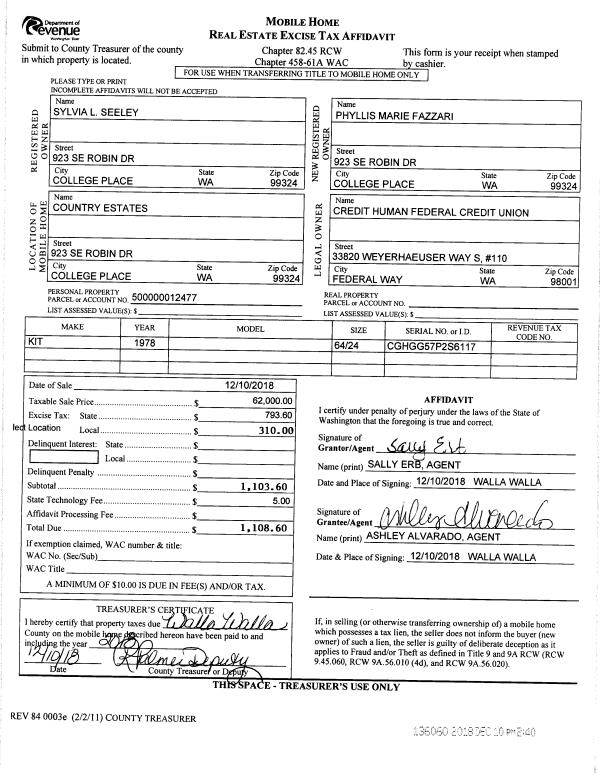 Department of
Revenue
Washington State
MOBILE HOME
REAL ESTATE EXCISE TAX AFFIDAVIT
Submit to County Treasurer of the county
in which property is located.
Chapter 82.45 RCW
Chapter 458-61A WAC
This form is your receipt when stamped
by cashier.
FOR USE WHEN TRANSFERRING TITLE TO MOBILE HOME ONLY
PLEASE TYPE OR PRINT
INCOMPLETE AFFIDAVITS WILL NOT BE ACCEPTED
REGISTERED OWNER
Name
SYLVIA L. SEELEY
Street
923 SE ROBIN DR
City State Zip Code
COLLEGE PLACE WA 99324
NEW REGISTERED OWNER
Name
PHYLLIS MARIE FAZZARI
Street
923 SE ROBIN DR
City State Zip Code
COLLEGE PLACE WA 99324
LOCATION OF MOBILE HOME
Name
COUNTRY ESTATES
Street
923 SE ROBIN DR
City State Zip Code
COLLEGE PLACE WA 99324
LEGAL OWNER
Name
CREDIT HUMAN FEDERAL CREDIT UNION
Street
33820 WEYERHAEUSER WAY S, #110
City State Zip Code
FEDERAL WAY WA 98001
PERSONAL PROPERTY
PARCEL or ACCOUNT NO. 500000012477
LIST ASSESSED VALUE(S): $
REAL PROPERTY
PARCEL or ACCOUNT NO.
LIST ASSESSED VALUE(S): $
MAKE YEAR MODEL SIZE SERIAL NO. or I.D. REVENUE TAX CODE NO.
KIT 1978 64/24 CGHGG57P2S6117
Date of Sale 12/10/2018
Taxable Sale Price $ 62,000.00
Excise Tax: State $ 793.60
lect Location Local $ 310.00
Delinquent Interest: State $
Local $
Delinquent Penalty $
Subtotal $ 1,103.60
State Technology Fee $ 5.00
Affidavit Processing Fee $
Total Due $ 1,108.60
If exemption claimed, WAC number & title:
WAC No. (Sec/Sub)
WAC Title
A MINIMUM OF $10.00 IS DUE IN FEE(S) AND/OR TAX.
AFFIDAVIT
I certify under penalty of perjury under the laws of the State of
Washington that the foregoing is true and correct.
Signature of
Grantor/Agent Sally Erb
Name (print) SALLY ERB, AGENT
Date and Place of Signing: 12/10/2018 WALLA WALLA
Signature of
Grantee/Agent Ashley Alvarado
Name (print) ASHLEY ALVARADO, AGENT
Date & Place of Signing: 12/10/2018 WALLA WALLA
TREASURER'S CERTIFICATE
I hereby certify that property taxes due Walla Walla
County on the mobile home described hereon have been paid to and
including the year 2018
12/10/18 Deputy
Date County Treasurer or Deputy
If, in selling (or otherwise transferring ownership of) a mobile home
which possesses a tax lien, the seller does not inform the buyer (new
owner) of such a lien, the seller is guilty of deliberate deception as it
applies to Fraud and/or Theft as defined in Title 9 and 9A RCW (RCW
9.45.060, RCW 9A.56.010 (4d), and RCW 9A.56.020).
THIS SPACE - TREASURER'S USE ONLY
REV 84 0003e (2/2/11) COUNTY TREASURER
136060 2018 DEC 10 PM 2:40